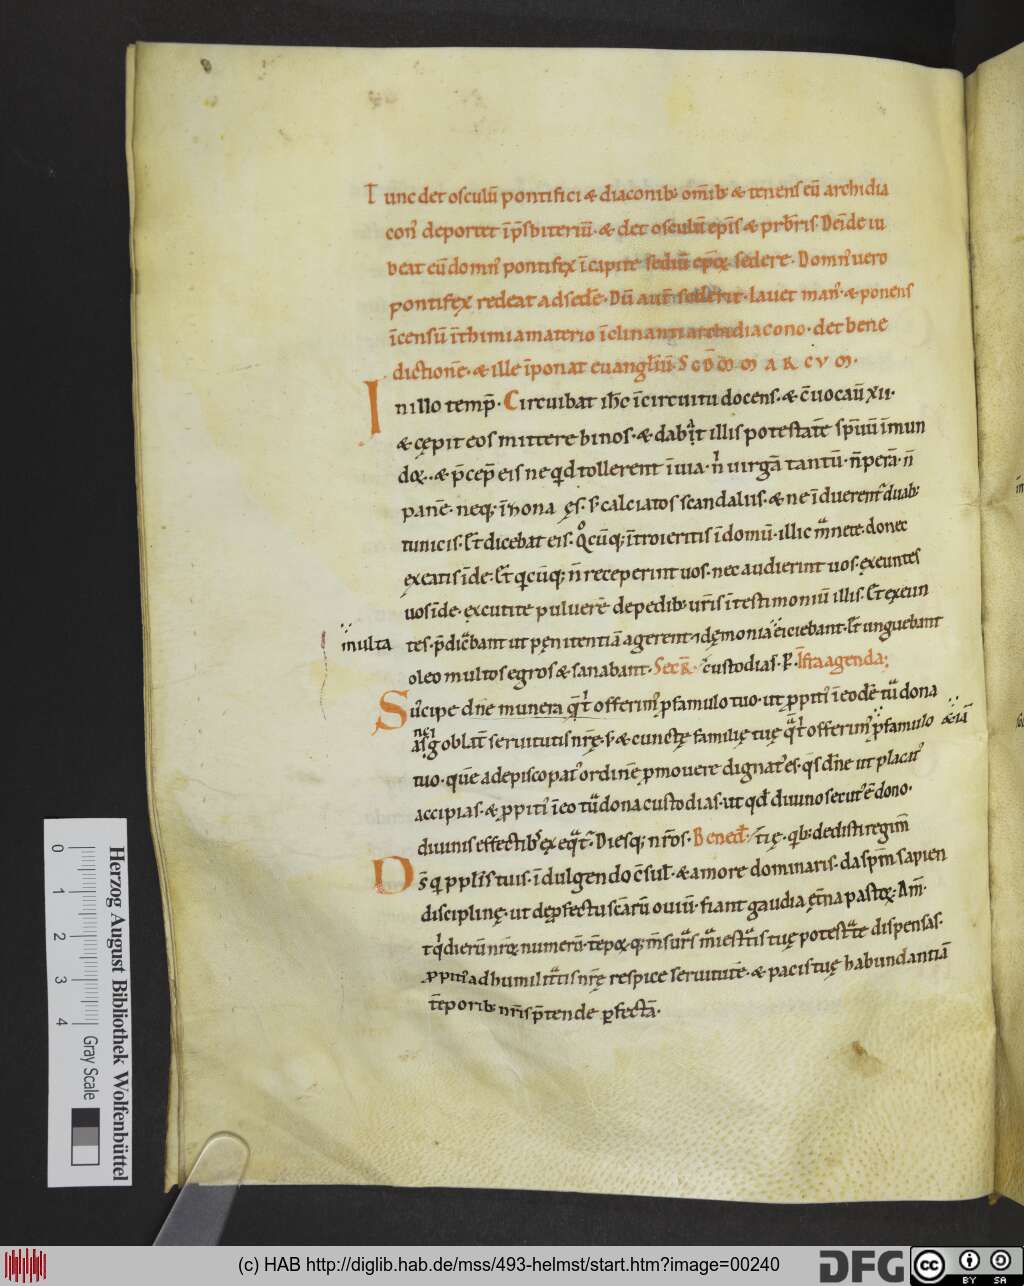 Tunc det osculū pontifici & diaconib; om̄ib; & tenens eū archidia
con' deportet ī p̄sbiteriū· & det osculū ep̄is & prb̄ris· Deīde iu
beat eū domn' pontifex ī capite sediū ep̄oꝝ sedere· Domn' uero
pontifex redeat ad sedē· Dū aut̄ sederit· lauet man'· & ponens
īcensū ī thimiamaterio īclinanti archidiacono· det bene
dictionē· & ille īponat euangl̄iū· Scd̄m MARCVM·
In illo temp̄· Circuibat ih̄c ī circuitu docens· & c̄uocau̅ xii·
& cępit eos mittere binos· & dabat illis potestatē sp̄uū īmun
doꝝ· & p̄cep̄ eis ne qd tollerent ī uia· n̄ uirgā tantū· n̄ perā· n̄
panē· neq; ī zona ęs· s; calciatos scandaliis· & ne īduerent' duab;
tunicis· Et dicebat eis· qͦcūq; ītroieritis ī domū· illic manete· donec
exeatis īde· Et qcūq; n̄ receperint uos· nec audierint uos· exeuntes
uos īde· excutite puluerē de pedib; ur̄is ī testimoniū illis· Et exeun
tes· p̄dicabant ut pęnitentiā agerent· ⁊ dęmonia eiciebant· Et unguebant
multa
oleo multos egros & sanabant· Secr̄· custodias· P· Infra agenda;
Suscipe dn̄e munera q̄ t' offerim' p famulo tuo· ut ppiti' ī eodē tu̅ dona
Hanc igit̄ oblat̄ seruitutis nr̄ę· s; & cunctę familię tuę q̄ t' offerim' p famulo
& iā
tuo· quē ad episcopat' ordinē pmouere dignat' es· qs dn̄e ut placat'
accipias· & ppiti' ī eo tua dona custodias· ut qd diuino secut' ē dono·
diuinis effectib; exeqat̄· Diesq; nr̄os· Bened̄· tię· qb; dedisti regim̄
Ds̄ q pplīs tuis· īdulgendo c̄sulis· & amore dominaris· da sp̄m sapien
disciplinę· ut de pfectu sc̄arū ouiū· fiant gaudia ęt̄na pastoꝝ· Am̄·
t' qui dierū nr̄oꝝ numerū· tēpoꝝ q; m̄suras maiestatis tuę potestate dispensas·
ppiti' ad humilitatis nr̄ę respice seruitutē· & pacis tuę habundantiā
tēporib; nr̄is p̄tende pfectā·
Herzog August Bibliothek Wolfenbüttel
0 1 2 3 4 Gray Scale
(c) HAB http://diglib.hab.de/mss/493-helmst/start.htm?image=00240
DFG
cc BY SA